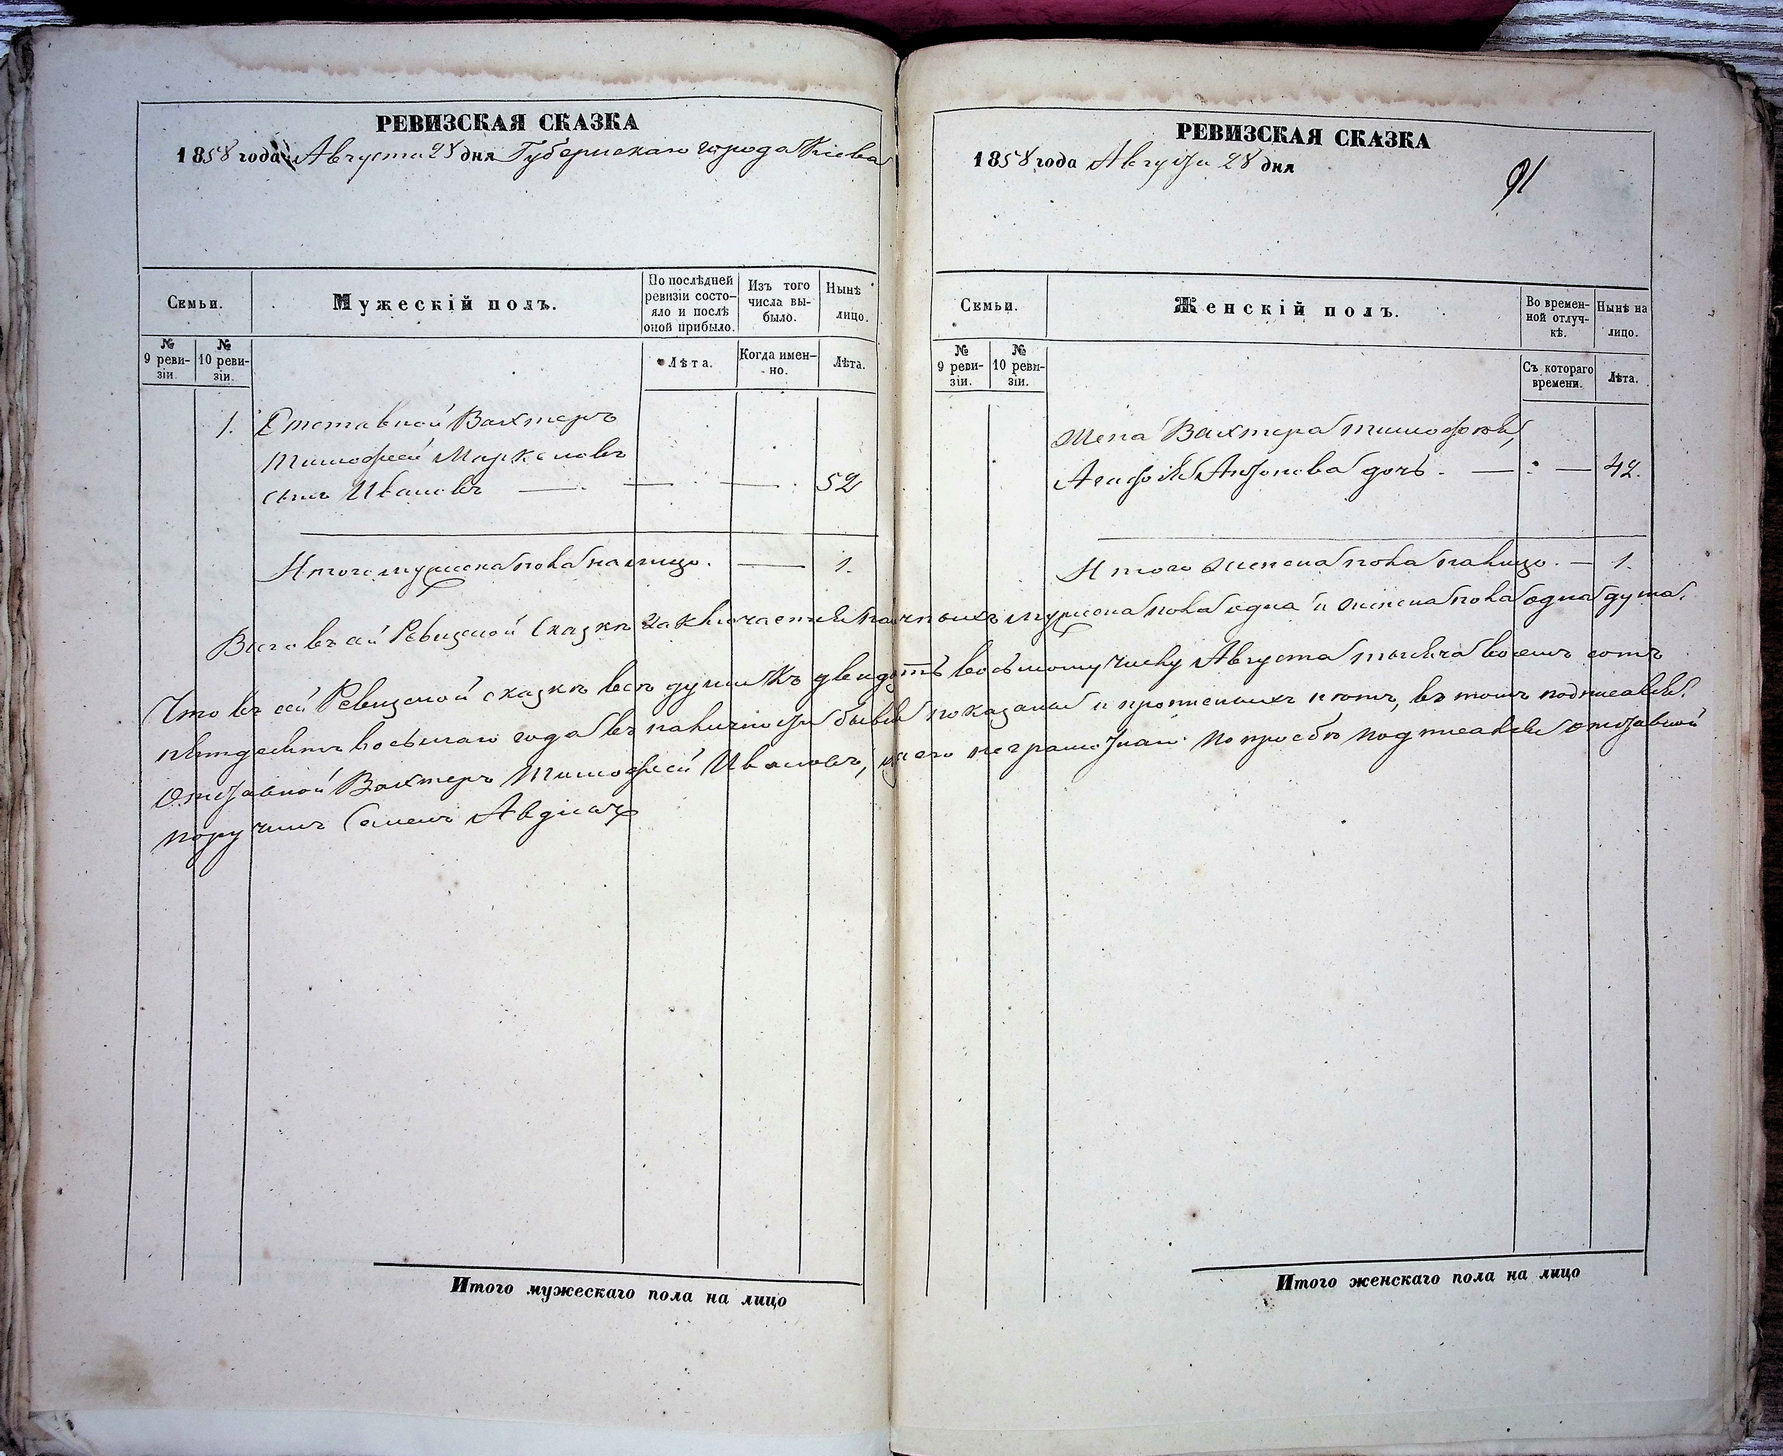 РЕВИЗСКАЯ СКАЗКА
1858 года Августа 28 дня Губернскаго города Кіева
Семьи.
Мужескій полъ.
По послѣдней ревизіи состо-
яло и послѣ оной прибыло.
Изъ того числа вы-
было.
Нынѣ лицо.
№ 9 реви-
зіи.
№ 10 реви-
зіи.
Лѣта.
Когда имен-
но.
Лѣта.
1. Отставной Вахтеръ
Тимофей Маркеловъ
сынъ Ивановъ — — — 52
Итого мужеска пола на лицо. — 1.
РЕВИЗСКАЯ СКАЗКА
1858 года Августа 28 дня
91
Семьи.
Женскій полъ.
Во времен-
ной отлуч-
кѣ.
Нынѣ на лицо.
№ 9 реви-
зіи.
№ 10 реви-
зіи.
Съ котораго времени.
Лѣта.
Жена Вахтера Тимофея,
Антонова дочь. — — 42.
Итого женска пола на лицо. — 1.
Всего въ сей Ревизской Сказкѣ заключается наличныхъ мужеска пола одна и женска пола одна душа.
Что въ сей Ревизской сказкѣ всѣ души къ двидцать восьмому числу Августа тысяча восемь сотъ
пятдесятъ восьмаго года въ наличности бывшія показаны и прописныхъ нѣтъ, въ томъ подписался.
Отставной Вахтеръ Тимофей Ивановъ, а за его неграмотнаго по просьбѣ подписался отставной
поручикъ Семенъ
Итого мужескаго пола на лицо
Итого женскаго пола на лицо